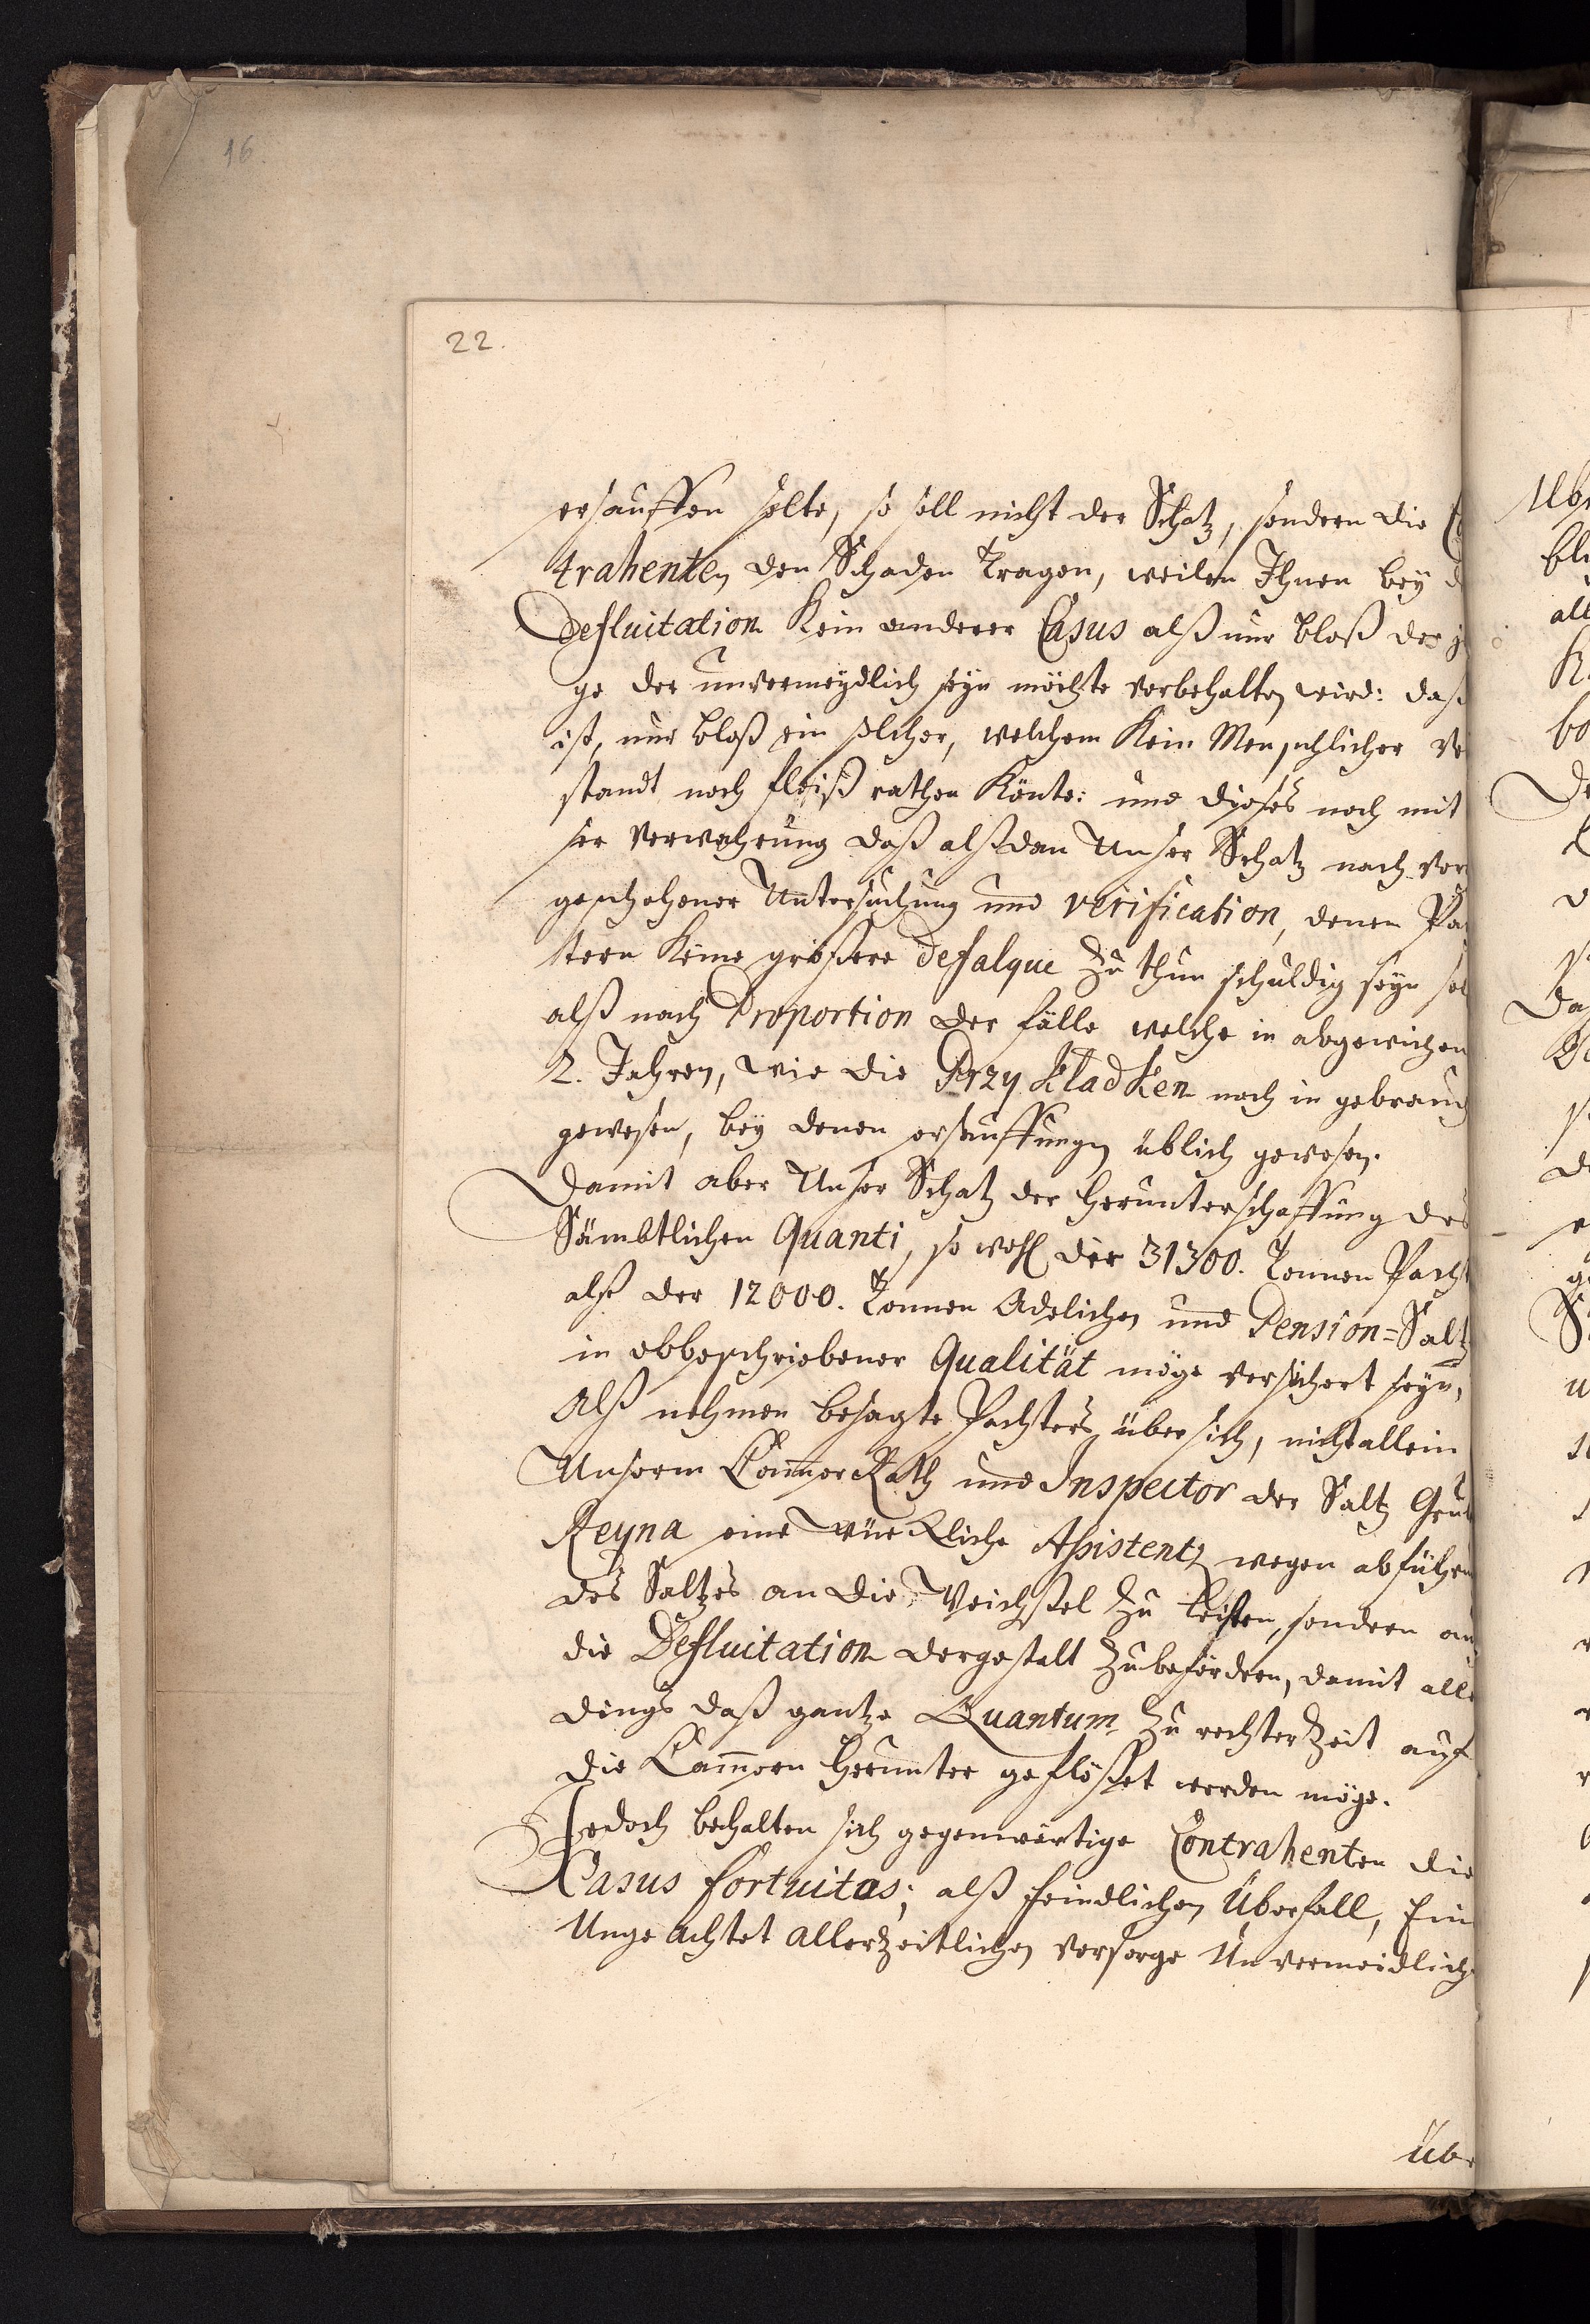 16.
22.
ersauffen solte, so soll nicht der Schatz, sondern die
trahenten den Schaden tragen, weilen Ihnen bey d
Defluitation Kein anderer Casus alß nur bloß der j
ge der unvermeydlich seyn möchte vorbehalten wird: daß
ist, nur bloß ein solcher, welchem Kein Menschlicher Ve
standt noch fleiß rathen Könte: und dieses noch mit
ser Verwahrung daß alßdan Unser Schatz nach vor
geschehener Untersuchung und verification, denen Pa
tern Keine größere defalque zu thun schuldig seyn sol
alß nach Proportion der fälle welche in abgewichen
2. Jahren, wie die Przykladken noch in gebrauch
gewesen, bey denen ersauffungen üblich gewesen.
Damit aber Unser Schatz der herunterschaffung des
Sämbtlichen Quanti, so wohl der 31300. Tonnen Pacht
alß der 12000. Tonnen Adelichen und Pension=Saltz
in obbeschriebener Qualität möge versichert seyn,
Alß nehmen besagte Pachters über sich, nicht allein
Unserm Cammer Rath und Inspector der Saltz Grub
Reyna eine würckliche Assistentz wegen abführen
des Saltzes an die Weichsel zu leisten, sondern au
die Defluitation dergestalt zubefördern, damit alle
dings daß gantze Quantum zu rechter Zeit auf
die Cammern herunter geflößet werden möge.
Jedoch behalten sich gegenwärtige Contrahenten die
Casus fortuitos; alß feindlichen Überfall, Ein
Ungeachtet aller zeitlichen vorsorge Unvermeidliche
Üb